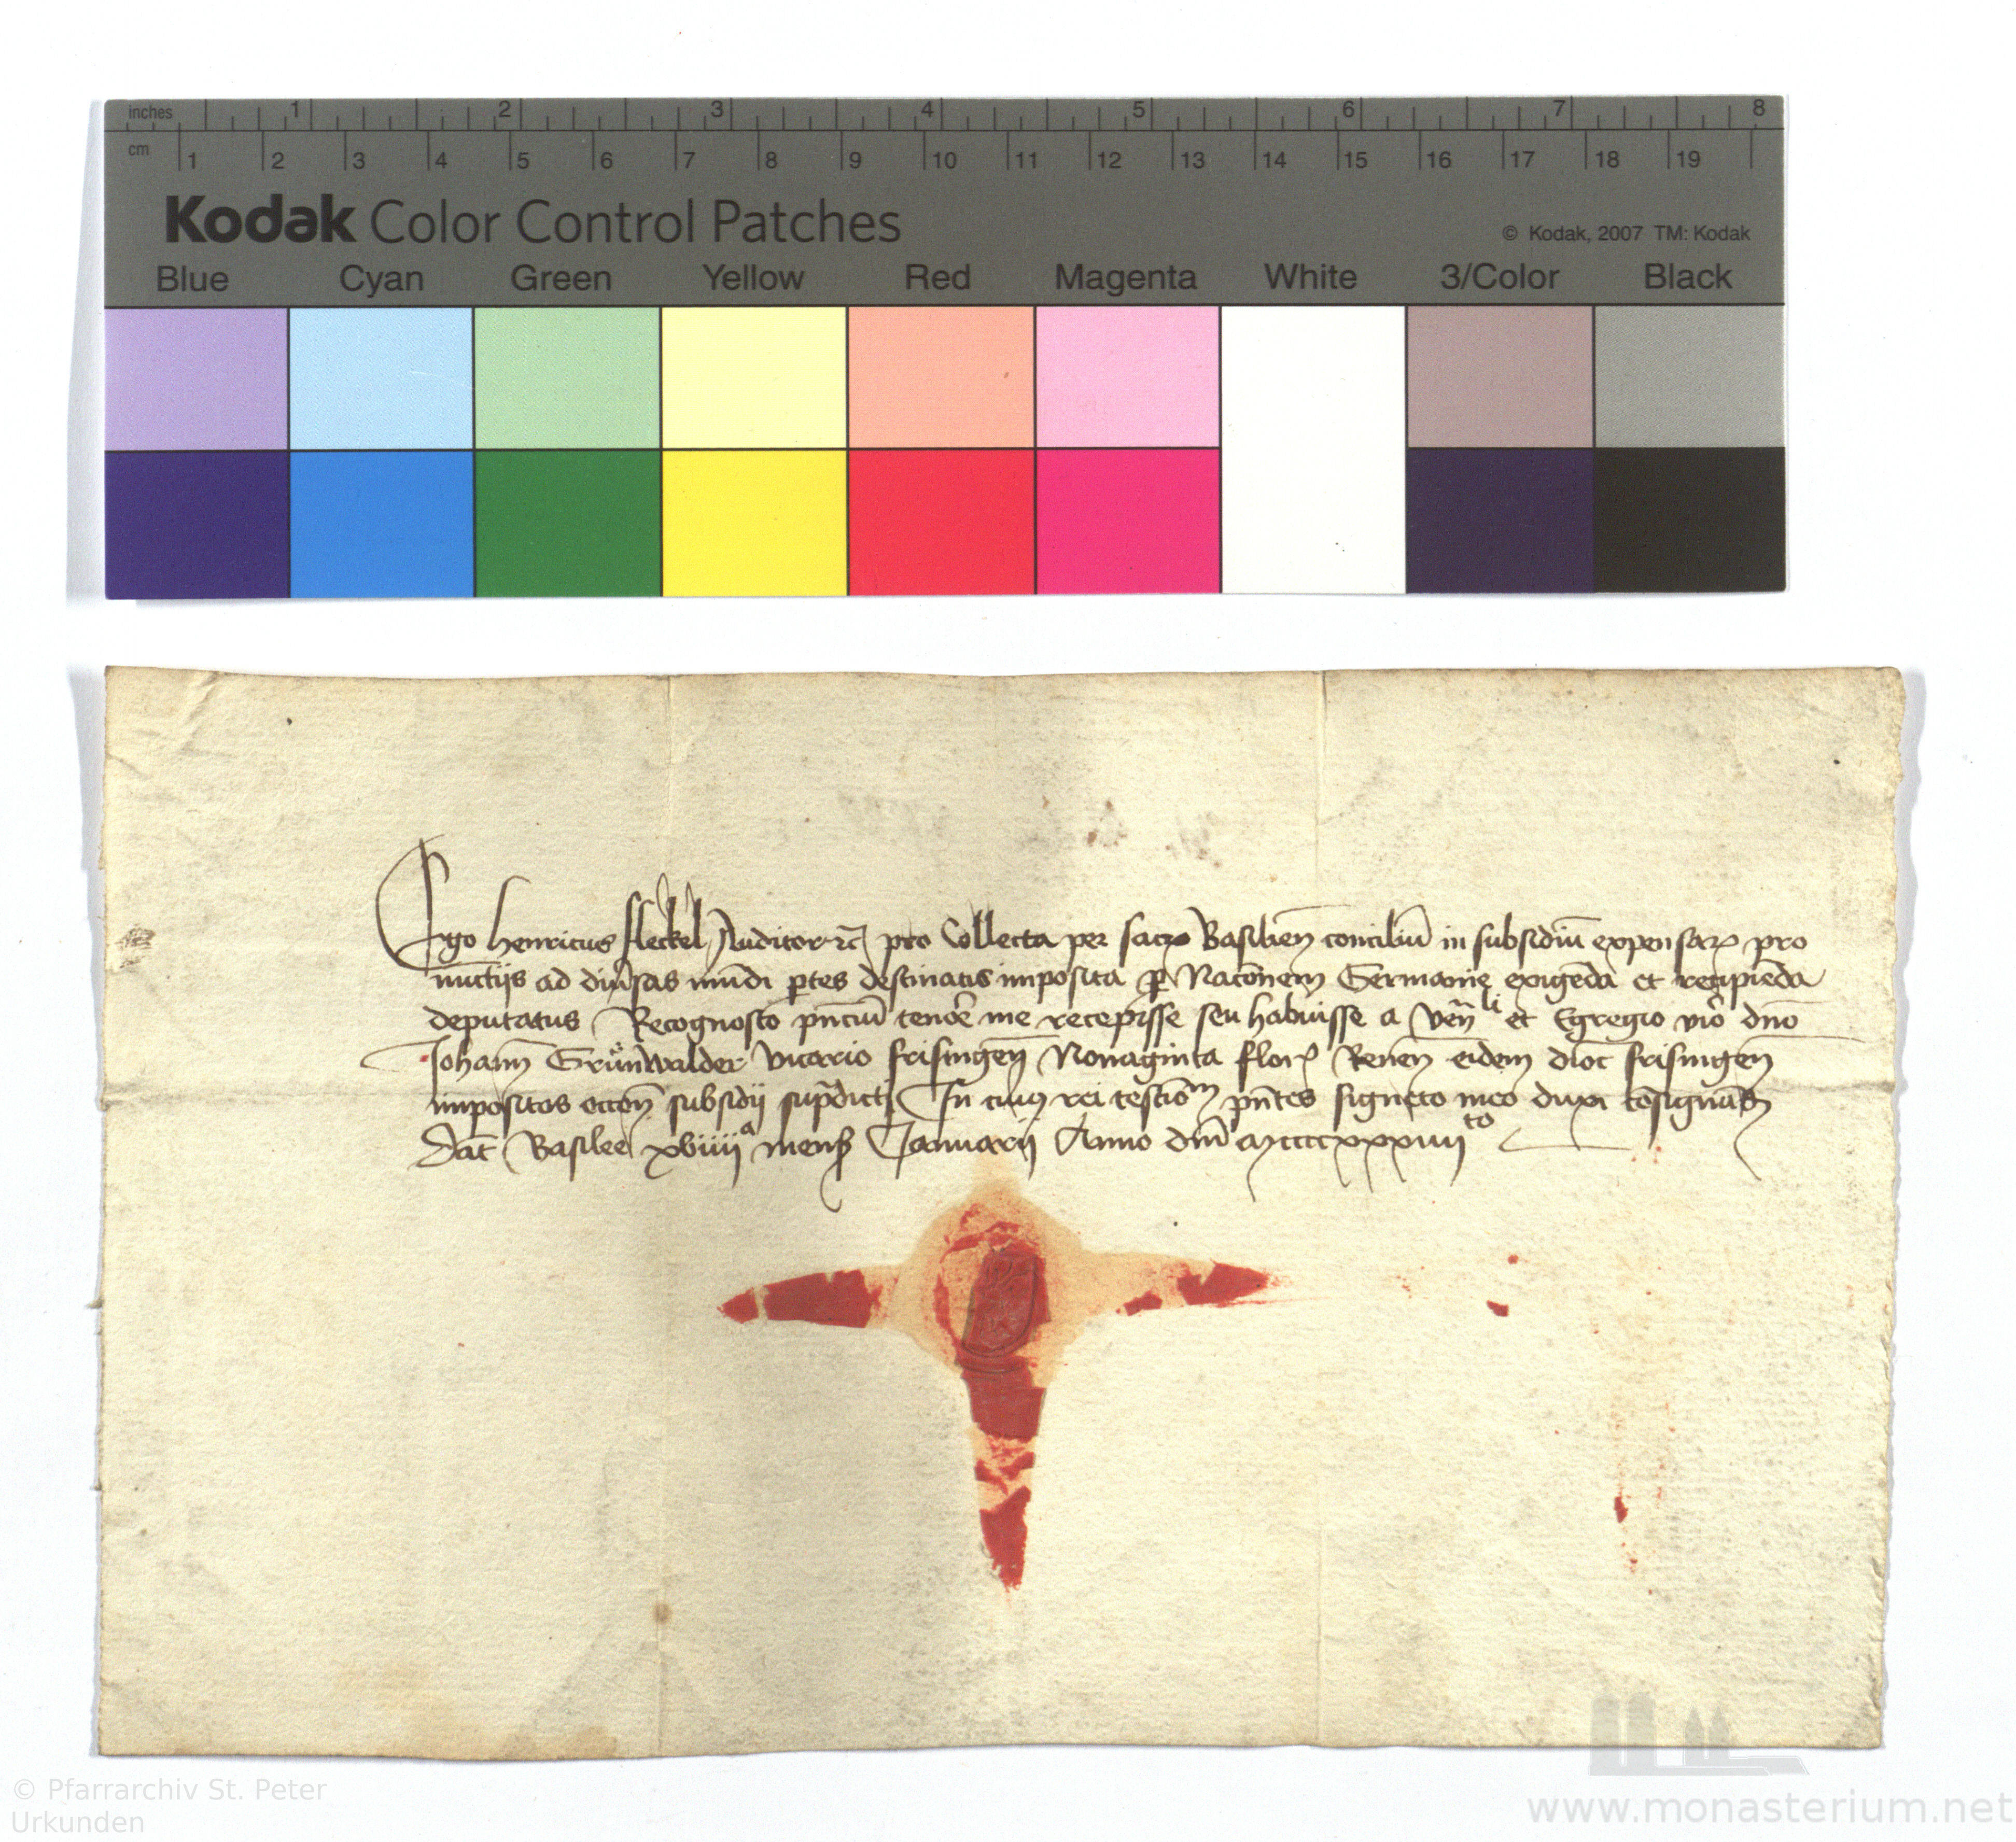 inches 1 2 3 4 5 6 7 8
cm 1 2 3 4 5 6 7 8 9 10 11 12 13 14 15 16 17 18 19
Kodak Color Control Patches
© Kodak, 2007 TM: Kodak
Blue Cyan Green Yellow Red Magenta White 3/Color Black
Ego henricus fleckel Auditor ⁊c̄ pro Collecta per sacꝝ Basilien̄ conciliū in subsidiū expensaꝝ pro
nūctijs ad diūsas mūdi ꝑtes destinatis imposita ꝑ Nac̄onem Germanie exigēda et recipiēda
deputatus Recognosco pn̄ciū tenōe me recepisse seu habuisse a ven̄li et Egregio viō dn̄o
Johann̄ Grünwalder vicario frisingen̄ Nonaginta floꝝ Renen̄ eidem dioc̄ frisingen̄
impositos occon̄ subsidij sup̄dicti In cuiꝰ rei testiōm pn̄tes signeto meo duxi
Dat̄ Basilee xviiij a mensꝭ Januarij Anno dnī mccccxxxiiij to
© Pfarrarchiv St. Peter
Urkunden
www.monasterium.net